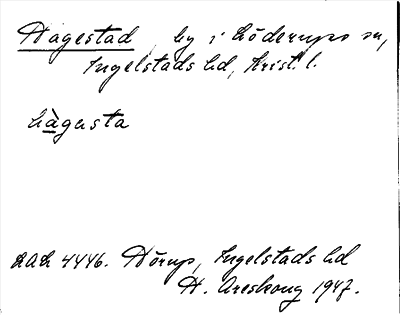 Hagestad by i Löderups sn,
Ingelstads hd, Krist. l.
hàgesta
LAL 4446. Hörup, Ingelstads hd
H. Areskoug 1947.